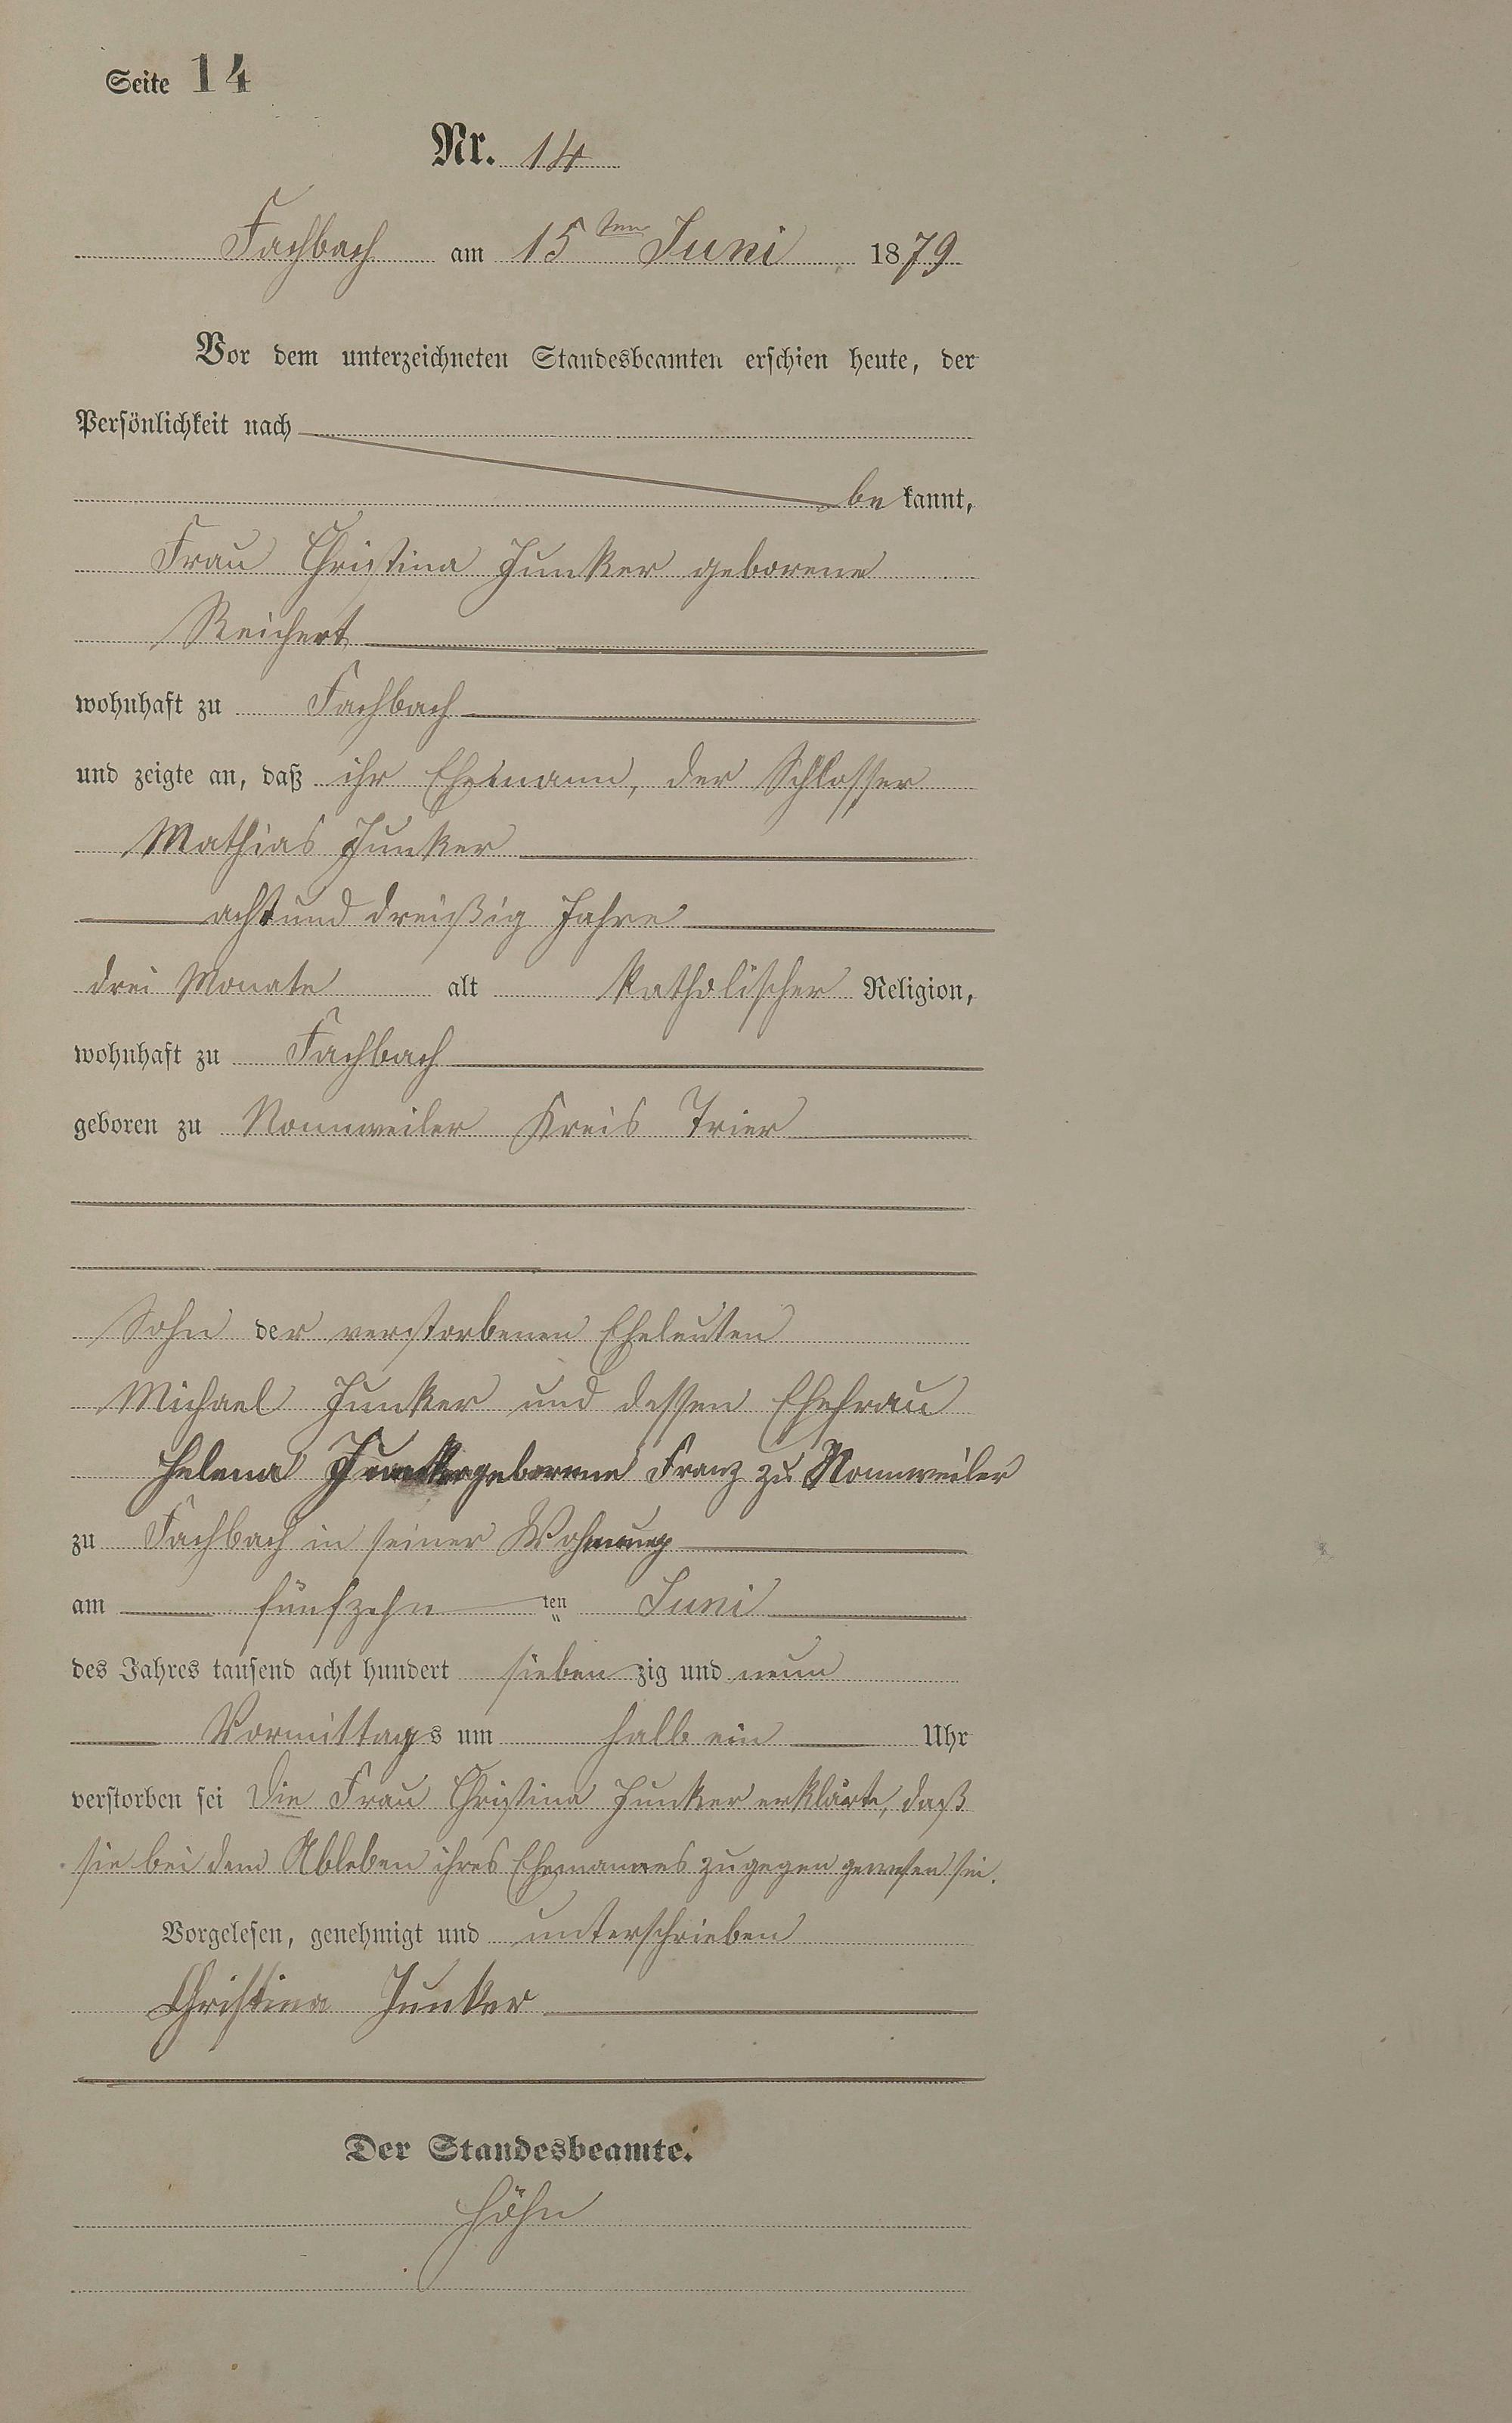 Seite 14
Nr. 14
Fachbach am 15ten Juni 1879
Vor dem unterzeichneten Standesbeamten erschien heute, der
Persönlichkeit nach
be kannt,
Frau Christina Junker geborene
Reichert
wohnhaft zu Fachbach
und zeigte an, daß ihr Ehemann, der Schlosser
Mathias Junker
achtund dreißig Jahre
drei Monate alt katholischer Religion,
wohnhaft zu Fachbach
geboren zu Nonnweiler Kreis Trier
Sohn der verstorbenen Eheleuten
Michael Junker und dessen Ehefrau
Helena Junker geborene Franz zu Nonnweiler
zu Fachbach in seiner Wohnung
am fünfzehn ten Juni
des Jahres tausend acht hundert sieben zig und neun
Vormittags um halb ein Uhr
verstorben sei Die Frau Christina Junker erklärte, daß
sie bei dem Ableben ihres Ehemannes zugegen gewesen sei.
Vorgelesen, genehmigt und unterschrieben
Christina Junker
Der Standesbeamte.
Höhn